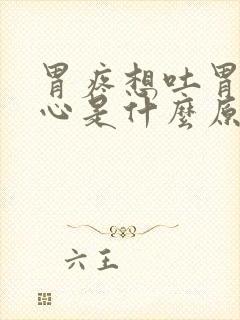 胃疼想吐胃
心是什麼原
六王